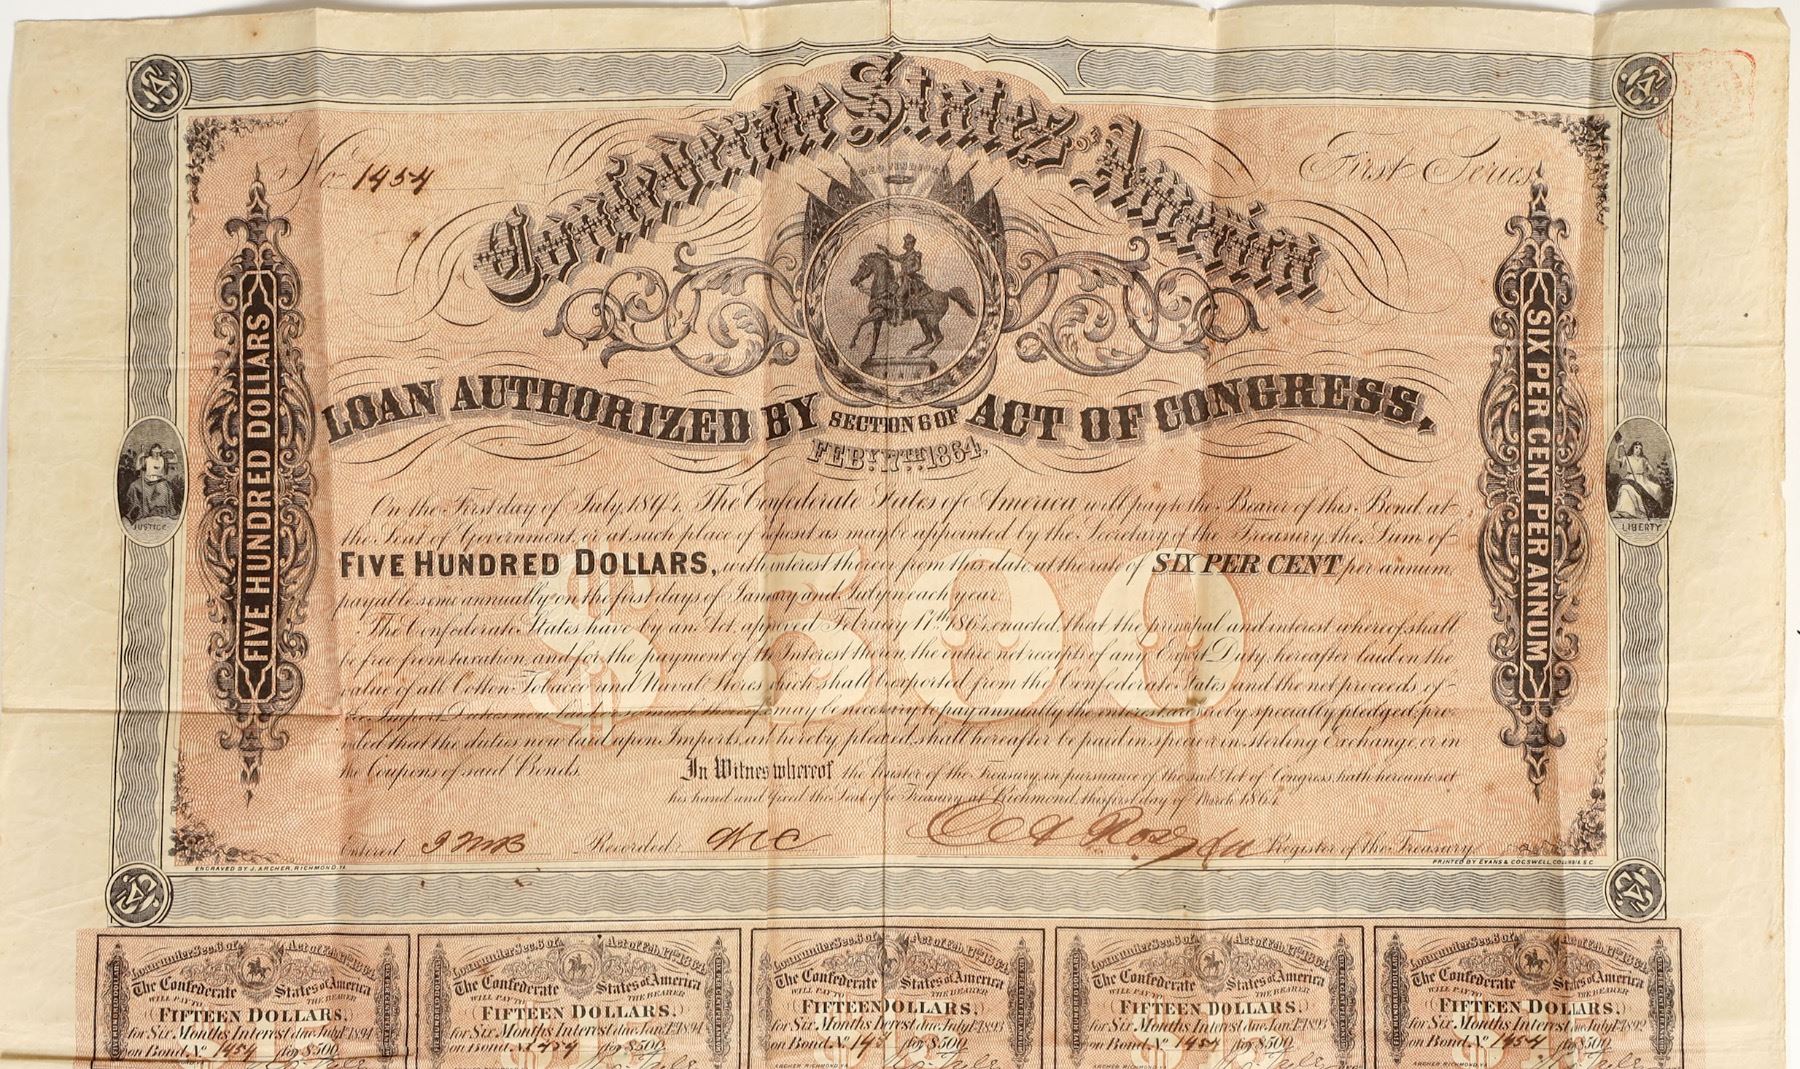 No. 1454
First Series
Confederate States of America
LOAN AUTHORIZED BY SECTION 6 OF ACT OF CONGRESS,
FEBY. 17TH. 1864.
FIVE HUNDRED DOLLARS
SIX PER CENT PER ANNUM
JUSTICE
LIBERTY
$500
On the First day of July, 1894, The Confederate States of America will pay to the Bearer of this Bond at
the Seat of Government, or at such place of deposit as may be appointed by the Secretary of the Treasury, the Sum of
FIVE HUNDRED DOLLARS, with interest thereon from this date, at the rate of SIX PER CENT per annum,
payable semi annually on the first days of January and July in each year.
The Confederate States have by an Act, approved February 17th 1864, enacted that the principal and interest whereof shall
be free from taxation, and for the payment of the Interest thereon, the entire net receipts of any Export Duty hereafter laid on the
value of all Cotton, Tobacco and Naval Stores, which shall be exported from the Confederate States, and the net proceeds of
the Import Duties now laid, or so much thereof as may be necessary to pay annually the interest, are hereby specially pledged; pro-
vided that the duties now laid upon Imports, and hereby pledged, shall hereafter be paid in specie or in Sterling Exchange, or in
the Coupons of said Bonds.
In Witness whereof the Register of the Treasury, in pursuance of the said Act of Congress, hath hereunto set
his hand and affixed the Seal of the Treasury, at Richmond, this first day of March 1864.
Entered
Recorded
Register of the Treasury
ENGRAVED BY J. ARCHER, RICHMOND, VA
PRINTED BY EVANS & COGSWELL, COLUMBIA S.C
Loan under Sec. 6 of Act of Feb. 17th 1864.
The Confederate States of America
WILL PAY TO THE BEARER
FIFTEEN DOLLARS,
for Six Months Interest due July 1st 1894
on Bond No. 1454 for $500
Loan under Sec. 6 of Act of Feb. 17th 1864.
The Confederate States of America
WILL PAY TO THE BEARER
FIFTEEN DOLLARS,
for Six Months Interest due Jan. 1st 1894
on Bond No. 1454 for $500
Loan under Sec. 6 of Act of Feb. 17th 1864.
The Confederate States of America
WILL PAY TO THE BEARER
FIFTEEN DOLLARS,
for Six Months Interest due July 1st 1893
on Bond No. for $500
Loan under Sec. 6 of Act of Feb. 17th 1864.
The Confederate States of America
WILL PAY TO THE BEARER
FIFTEEN DOLLARS,
for Six Months Interest due Jan. 1st 1893
on Bond No. 1454 for $500
ARCHER RICHMOND VA
Loan under Sec. 6 of Act of Feb. 17th 1864.
The Confederate States of America
WILL PAY TO THE BEARER
FIFTEEN DOLLARS,
for Six Months Interest due July 1st 1892
on Bond No. 1454 for $500
ARCHER RICHMOND VA